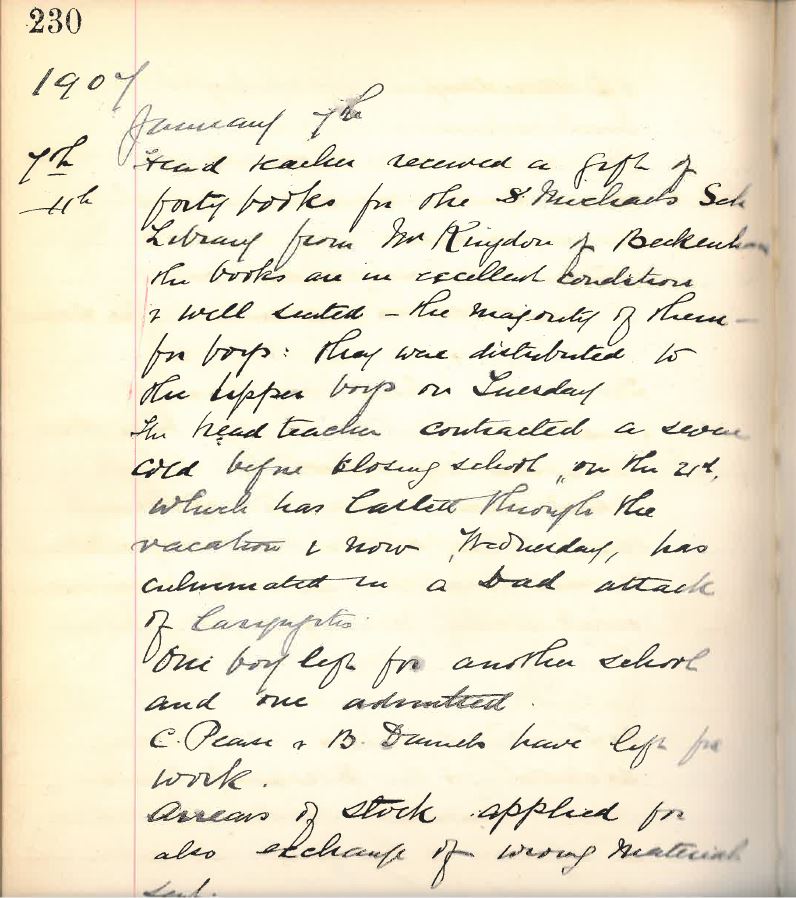 230
1907
January 7th
7th Head teacher received a gift of
11th forty books for the St Michaels Sch
Library from Mr Kingdon of Beckenham
the books are in excellent condition
& well suited – the majority of them –
for boys: they were distributed to
the upper boys on Tuesday
The head teacher contracted a severe
cold before closing school "on the 21st,
which has lasted through the
vacation & now, Wednesday, has
culminated in a bad attack
of laryngitis.
One boy left for another school
and one admitted.
C. Pease & B. Daniels have left for
work.
Arrears of stock applied for
also exchange of wrong material
sent.